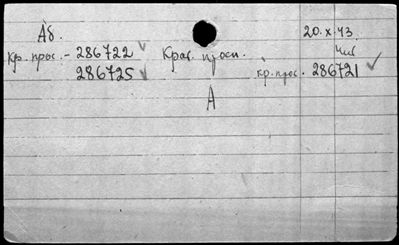 Аб.
20.X.43.
Кр. прос. - 286722 Крас. проси.
Чив
286725
кр. прос. 286721
А